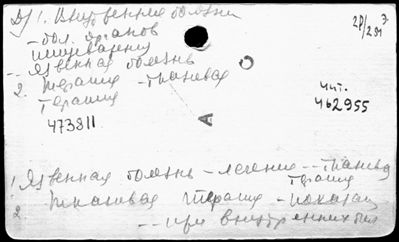 1. Внутренние болезни
2Р/231
– бол. органов
пищеварения
-- Язвенная болезнь
2. Терапия – тканевая
терапия
Чит.
462955
473811
А
1 Язвенная болезнь – лечение -- тканевая
терапия
2 Тканевая терапия – показан
-- при внутренних бол